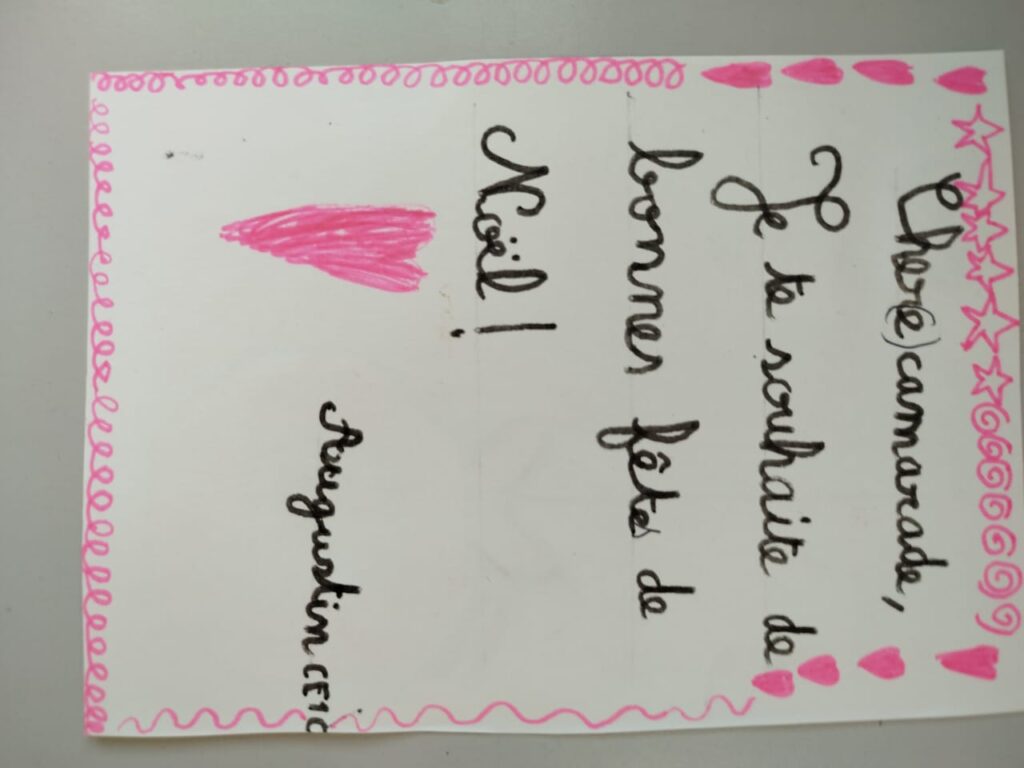 Cher(e) camarade,
Je te souhaite de
bonnes fêtes de
Noël !
Auugustin CE1C